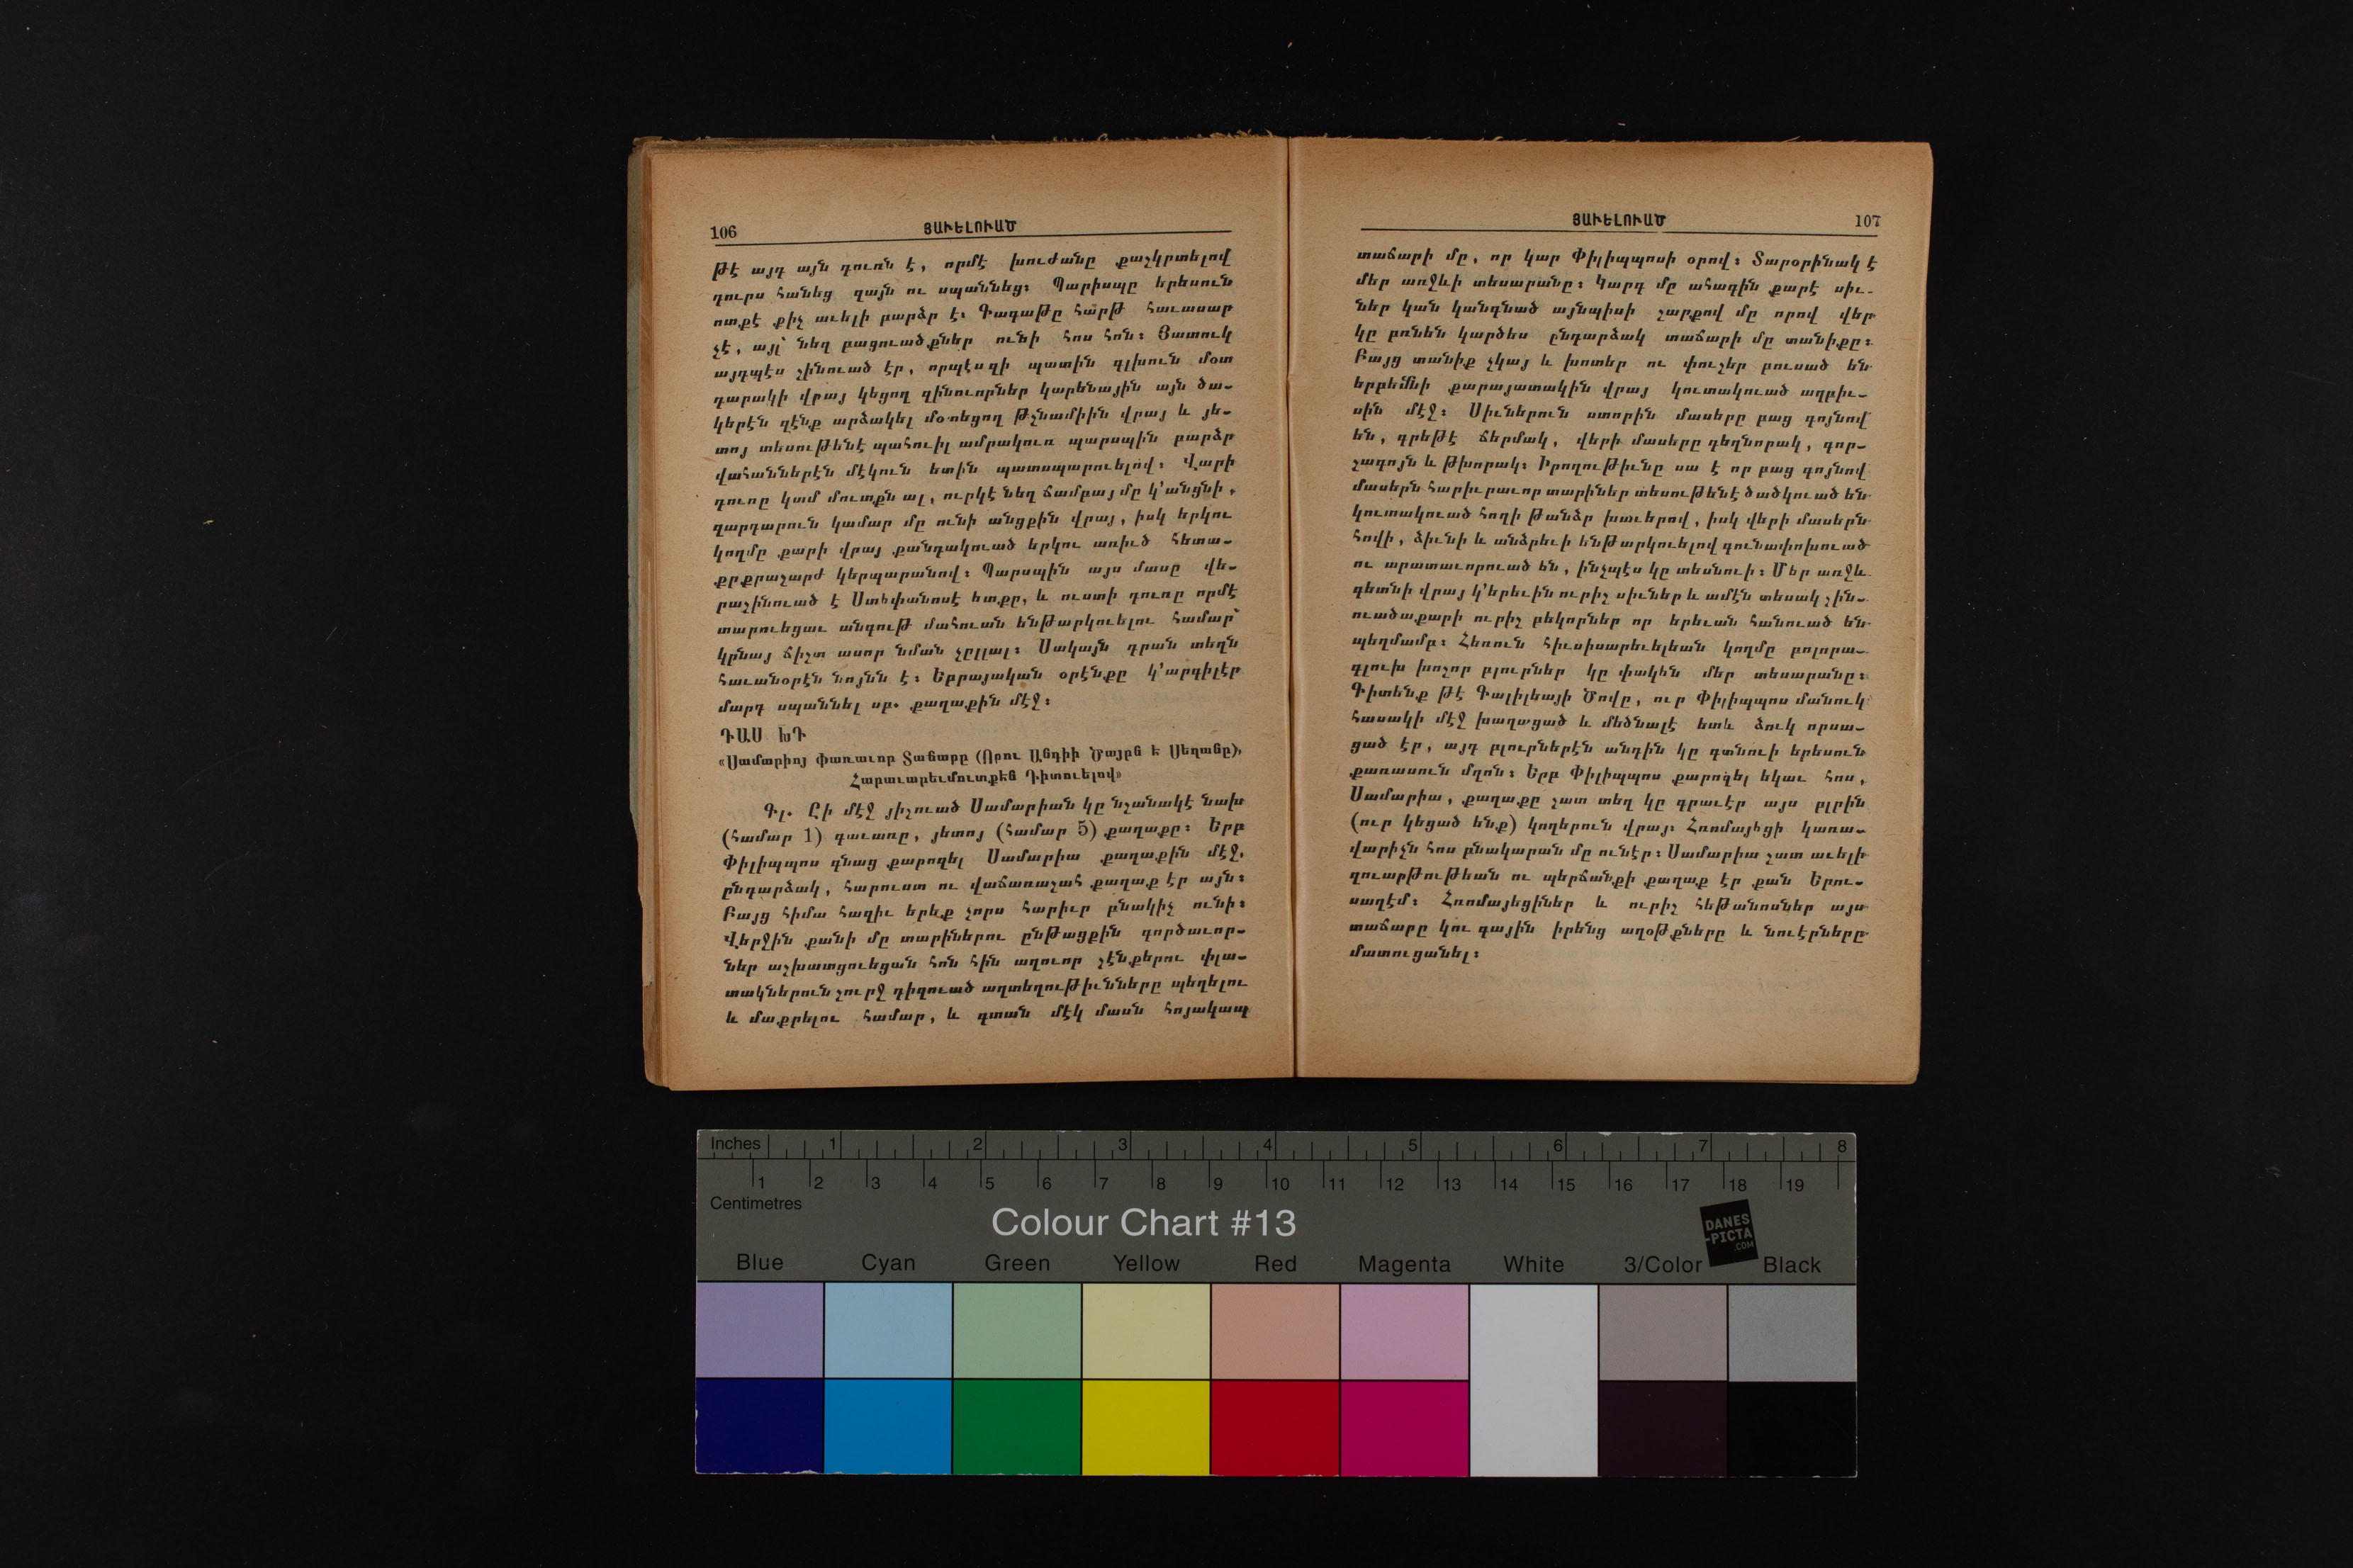 106
ՅԱՒԵԼՈՒԱԾ
թէ այդ այն դուռն է, որմէ խուժանը քաշկրտելով
դուրս հանեց զայն ու սպաննեց։ Պարիսպը երեսուն
ոտքէ քիչ աւելի բարձր է։ Գագաթը հարթ հաւասար
չէ, այլ՝ նեղ բացուածքներ ունի հոս հոն։ Յատուկ
այդպէս շինուած էր, որպէսզի պատին գլխուն մօտ
դարակի վրայ կեցող զինուորներ կարենային այն ծա-
կերէն զէնք արձակել մօտեցող թշնամիին վրայ և յե-
տոյ տեսութենէ պահուիլ ամրակուռ պարսպին բարձր
վահաններէն մէկուն ետին պատսպարուելով։ Վարի
դուռը կամ մուտքն ալ, ուրկէ նեղ ճամբայ մը կ՚անցնի,
զարդարուն կամար մը ունի անցքին վրայ, իսկ երկու
կողմը քարի վրայ քանդակուած երկու առիւծ հետա-
քրքրաշարժ կերպարանով։ Պարսպին այս մասը վե-
րաշինուած է Ստեփանոսէ ետքը, և ուստի դուռը որմէ
տարուեցաւ անգութ մահուան ենթարկուելու համար՝
կրնայ ճիշտ ասոր նման չըլլալ։ Սակայն դրան տեղն
հաւանօրէն նոյնն է։ Եբրայական օրէնքը կ՚արգիլէր
մարդ սպաննել սբ. քաղաքին մէջ։
ԴԱՍ ԽԴ
«Սամարիոյ Փառաւոր Տաճարը (Որու Անդիի Ծայրն է Սեղանը),
Հարաւարեւմուտքէն Դիտուելով»
Գլ. Ըի մէջ յիշուած Սամարիան կը նշանակէ նախ
(համար 1) գաւառը, յետոյ (համար 5) քաղաքը։ Երբ
Փիլիպպոս գնաց քարոզել Սամարիա քաղաքին մէջ,
ընդարձակ, հարուստ ու վաճառաշահ քաղաք էր այն։
Բայց հիմա հազիւ երեք չորս հարիւր բնակիչ ունի։
Վերջին քանի մը տարիներու ընթացքին գործաւոր-
ներ աշխատցուեցան հոն հին աղուոր շէնքերու փլա-
տակներուն շուրջ դիզուած աղտեղութիւնները պեղելու
և մաքրելու համար, և գտան մէկ մասն հոյակապ
ՅԱՒԵԼՈՒԱԾ
107
տաճարի մը, որ կար Փիլիպպոսի օրով։ Տարօրինակ է
մեր առջևի տեսարանը։ Կարգ մը ահագին քարէ սիւ-
ներ կան կանգնած այնպիսի շարքով մը որով վեր
կը բռնեն կարծես ընդարձակ տաճարի մը տանիքը։
Բայց տանիք չկայ և խոտեր ու փուշեր բուսած են
երբեմնի քարայատակին վրայ կուտակուած աղբիւ-
սին մէջ։ Սիւներուն ստորին մասերը բաց գոյնով
են, գրեթէ ճերմակ, վերի մասերը դեղնորակ, գոր-
շագոյն և թխորակ։ Իրողութիւնը սա է որ բաց գոյնով
մասերն հարիւրաւոր տարիներ տեսութենէ ծածկուած են
կուտակուած հողի թանձր խաւերով, իսկ վերի մասերն
հովի, ձիւնի և անձրեւի ենթարկուելով գունափոխուած
ու արատաւորուած են, ինչպէս կը տեսնուի։ Մեր առջև
գետնի վրայ կ՚երեւին ուրիշ սիւներ և ամէն տեսակ շին-
ուածաքարի ուրիշ բեկորներ որ երեւան հանուած են
պեղմամբ։ Հեռուն հիւսիսարեւելեան կողմը բոլորա-
գլուխ խոշոր բլուրներ կը փակեն մեր տեսարանը։
Գիտենք թէ Գալիլեայի Ծովը, ուր Փիլիպպոս մանուկ
հասակի մէջ խաղացած և մեծնալէ ետև ձուկ որսա-
ցած էր, այդ բլուրներէն անդին կը գտնուի երեսուն
քառասուն մղոն։ Երբ Փիլիպպոս քարոզել եկաւ հոս,
Սամարիա, քաղաքը շատ տեղ կը գրաւէր այս բլրին
(ուր կեցած ենք) կողերուն վրայ։ Հռոմայեցի կառա-
վարիչն հոս բնակարան մը ունէր։ Սամարիա շատ աւելի
զուարթութեան ու պերճանքի քաղաք էր քան Երու-
սաղէմ։ Հռոմայեցիներ և ուրիշ հեթանոսներ այս
տաճարը կու գային իրենց աղօթքները և նուէրները
մատուցանել։
Inches 1 2 3 4 5 6 7 8
1 2 3 4 5 6 7 8 9 10 11 12 13 14 15 16 17 18 19
Centimetres
Colour Chart #13
DANES
-PICTA
.COM
Blue Cyan Green Yellow Red Magenta White 3/Color Black